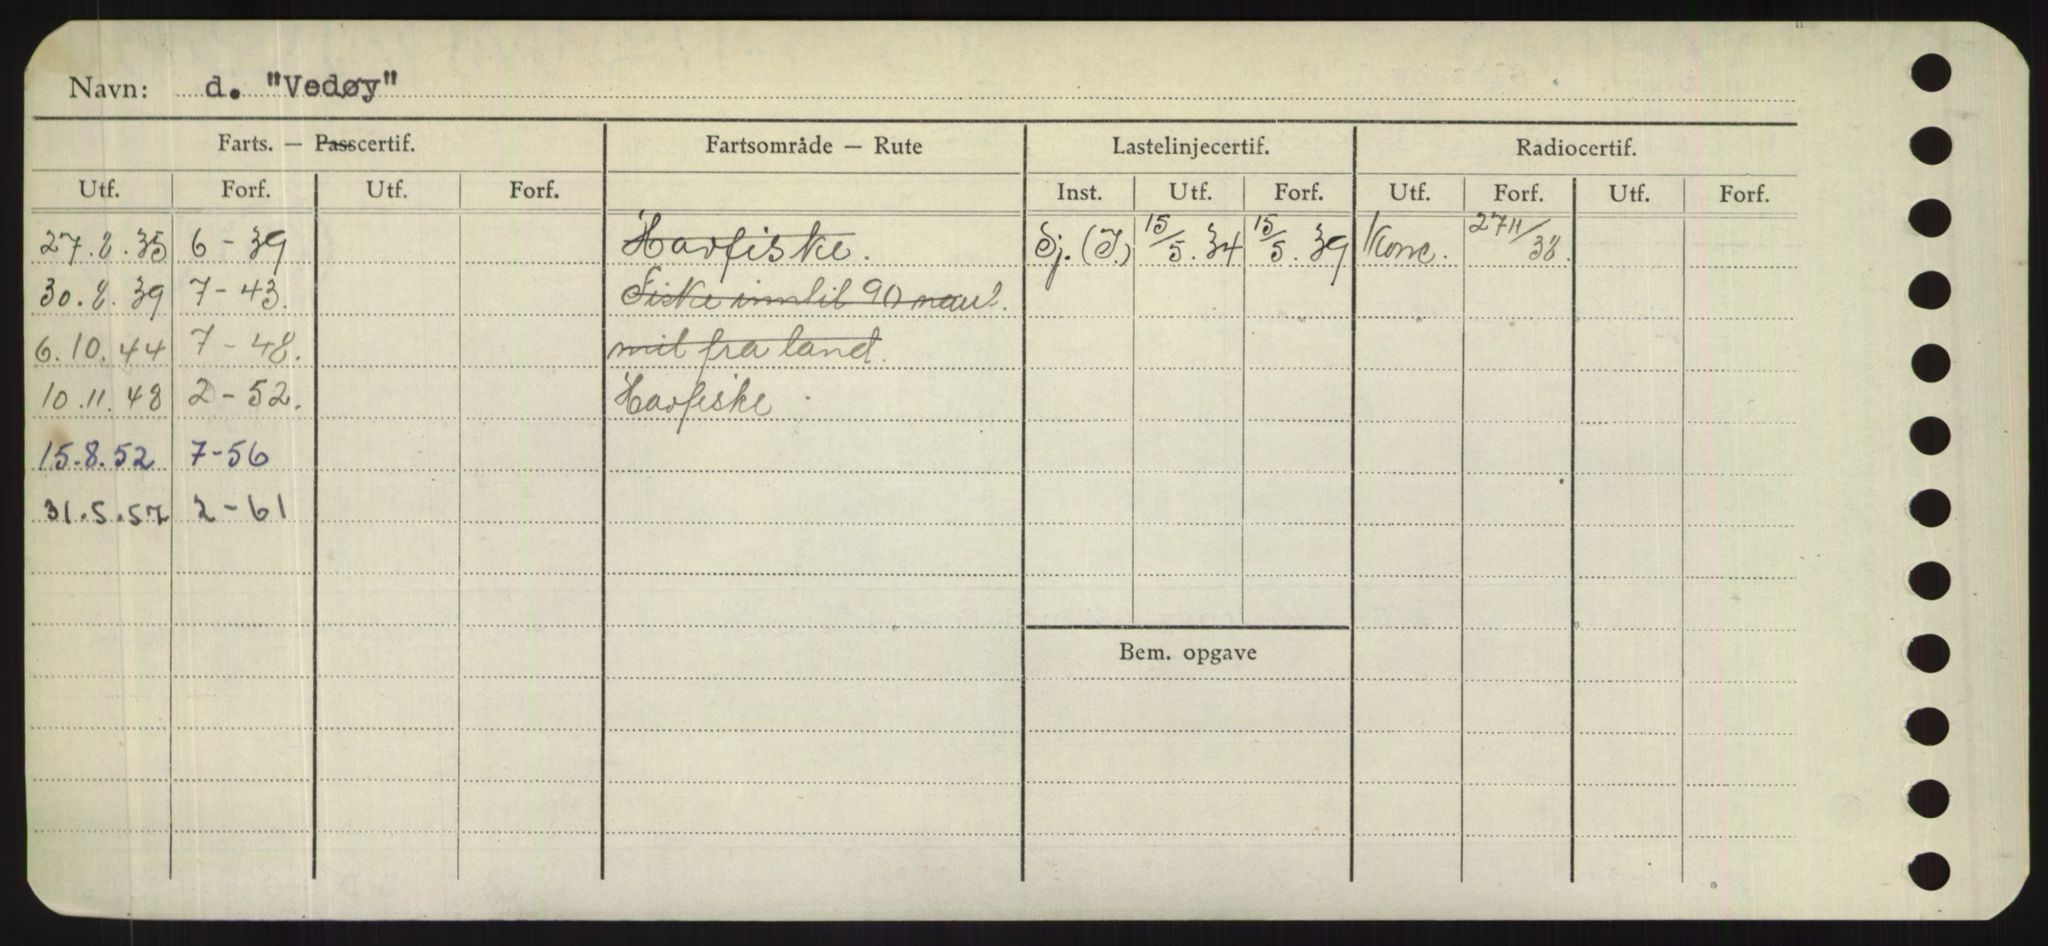 Navn: d. "Vedøy"
Farts. — Passcertif. Fartsområde — Rute Lastelinjecertif. Radiocertif.
Utf. Forf. Utf. Forf. Inst. Utf. Forf. Utf. Forf. Utf. Forf.
27.8.35 6-39 Havfiske. Sj.(I.) 15/5.34 15/5.39 Konc. 27 11/38.
30.8.39 7-43. Fiske inntil 90 naut.
6.10.44 7-48. mil fra land.
10.11.48 2-52. Havfiske
15.8.52 7-56
31.5.57 2-61
Bem. opgave